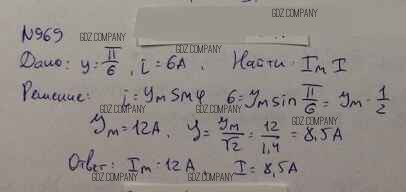 N969
GDZ.COMPANY
GDZ.COMPANY
Дано: φ = π/6, i = 6A. Найти: I_m I
GDZ.COMPANY
GDZ.COMPANY
Решение: i = Y_m sin φ 6 = Y_m sin π/6 = Y_m · 1/2
GDZ.COMPANY
GDZ.COMPANY
Y_m = 12A. Y = Y_m/√2 = 12/1,4 = 8,5A
GDZ.COMPANY
GDZ.COMPANY
Ответ: I_m = 12A, I = 8,5A
GDZ.COMPANY
GDZ.COMPANY